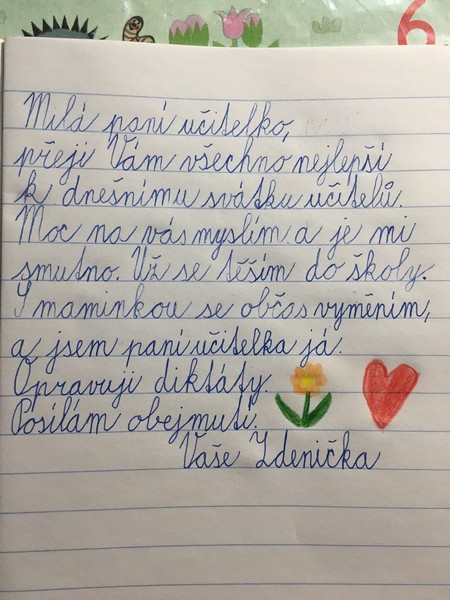 6
Milá paní učitelko,
přeji Vám všechno nejlepší
k dnešnímu svátku učitelů.
Moc na vás myslím a je mi
smutno. Už se těším do školy.
S maminkou se občas vyměním,
a jsem paní učitelka já.
Opravuji diktáty.
Posílám obejmutí.
Vaše Zdenička